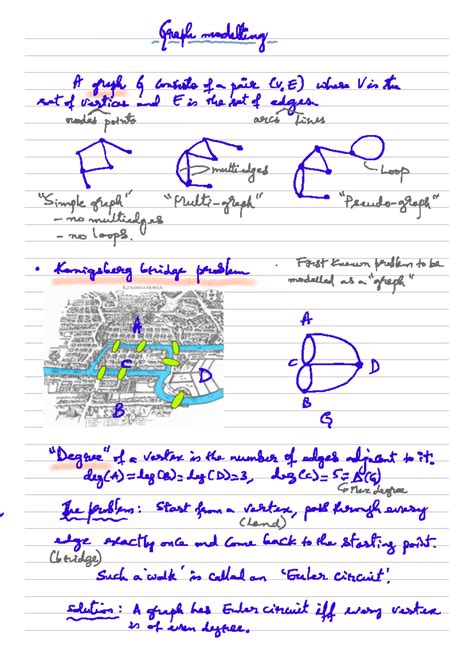 Graph modelling
A graph G consists of a pair (V, E) where V is the
set of vertices and E is the set of edges.
nodes points arcs lines
multiedges
Loop
"Simple graph" "Multi-graph" "Pseudo-graph"
- no multiedges
- no loops.
• Konigsberg bridge problem
· First known problem to be
modelled as a "graph"
A
C
D
B
A
C
D
B
G
"Degree" of a vertex is the number of edges adjacent to it.
deg(A)=deg(B)=deg(D)=3, deg(C)=5=Δ(G)
Max degree
The problem: Start from a vertex, pass through every
(land)
edge exactly once and come back to the starting point.
(bridge)
Such a 'walk' is called an 'Euler circuit'.
Solution: A graph has Euler circuit iff every vertex
is of even degree.